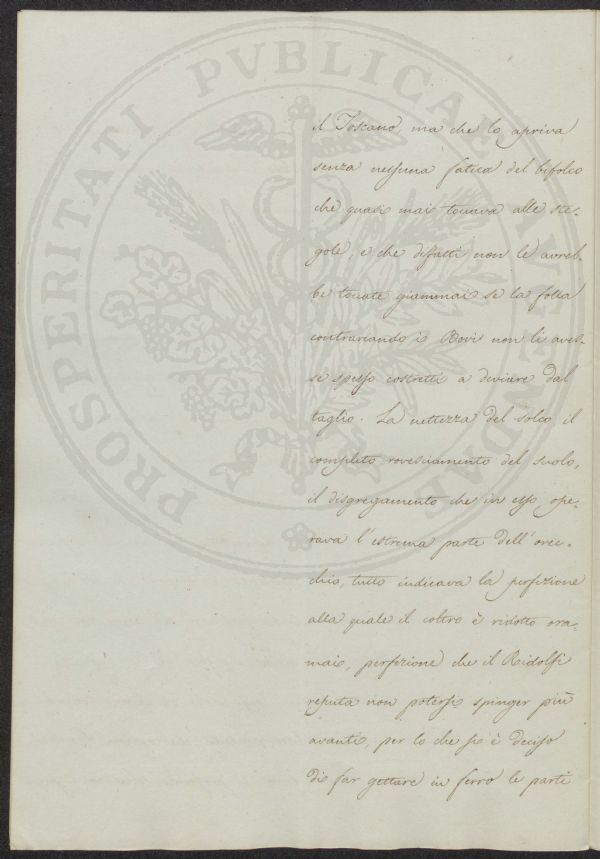 PROSPERITATI PVBLICAE AVGENDAE
il Toscano, ma che lo apriva
senza nessuna fatica del bifolco
che quasi mai toccava alle ste-
gole, e che difatti non le avreb-
be toccate giammai se la folla
contrariando i Bovi non li aves-
se spesso costretti a deviare dal
taglio. La nettezza del solco il
completo rovesciamento del suolo,
il disgregamento che in esso ope-
rava l'estrema parte dell'orec-
chio, tutto indicava la perfezione
alla quale il coltro è ridotto ora-
mai, perfezione che il Ridolfi
reputa non potersi spinger più
avanti, per lo che si è deciso
di far gettare in ferro le parti